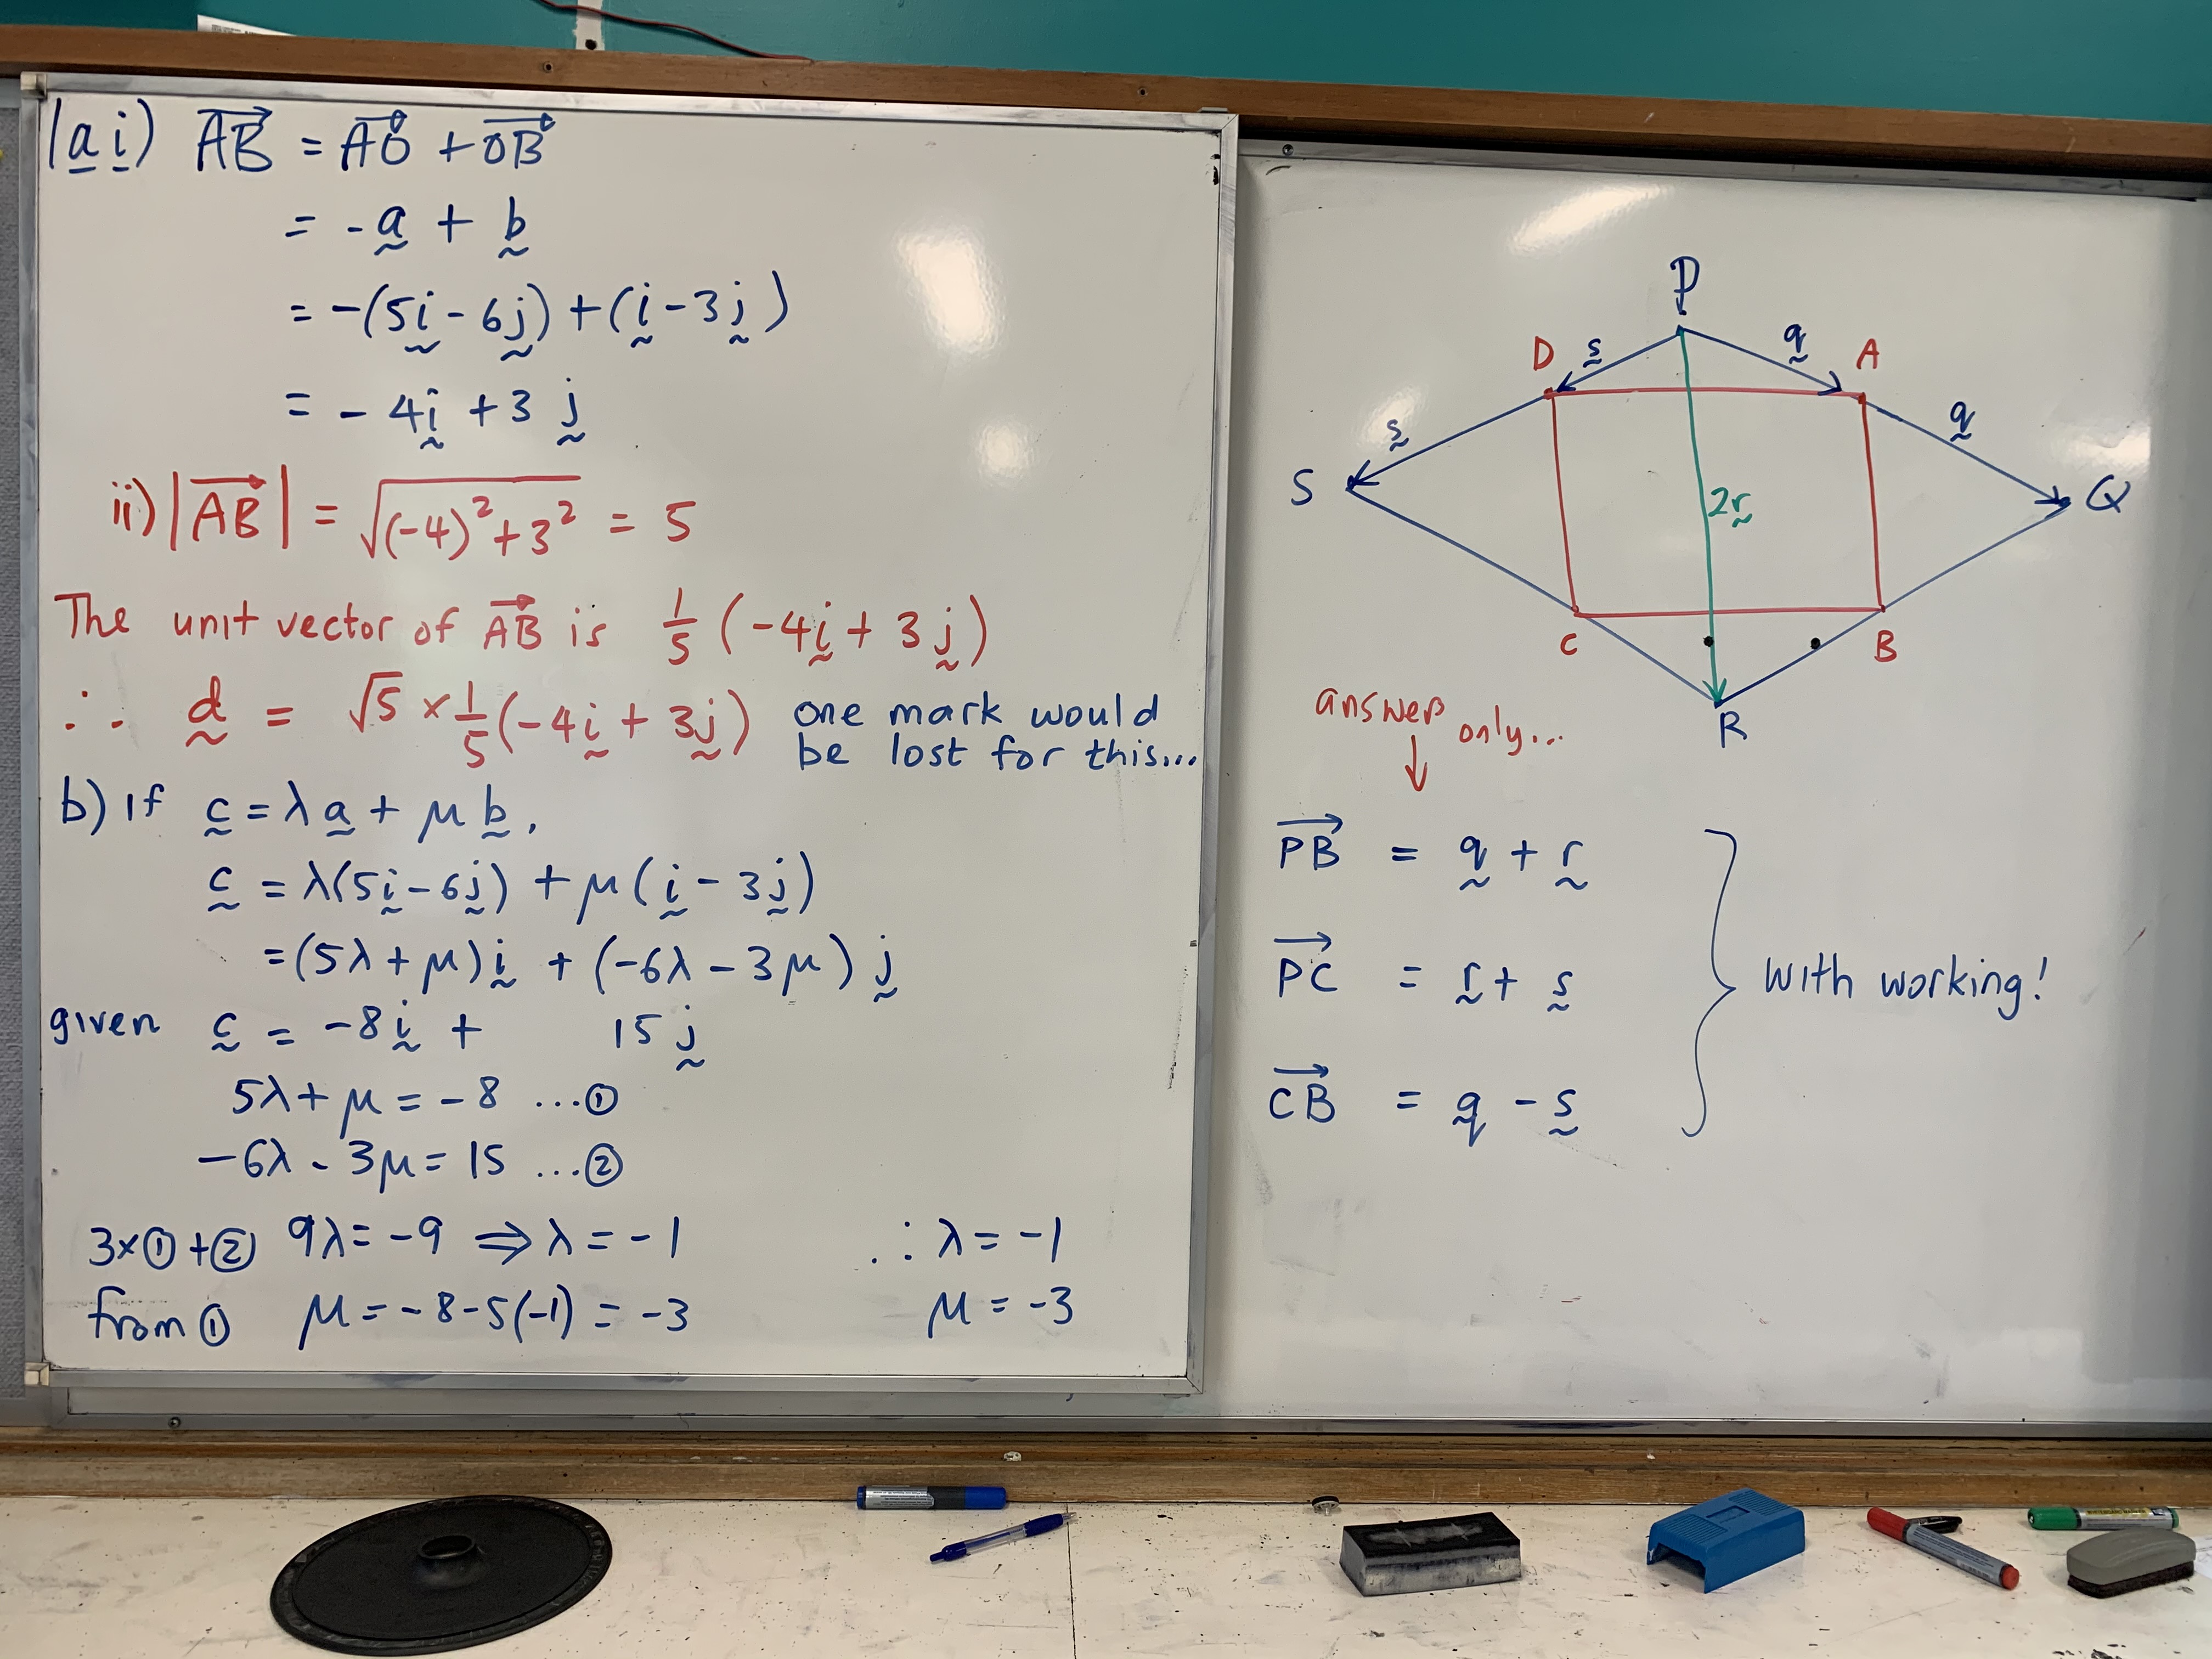 1a i) AB = AO + OB
= -a + b
= -(5i - 6j) + (i - 3j)
= -4i + 3j
ii) |AB| = √((-4)² + 3²) = 5
The unit vector of AB is 1/5 (-4i + 3j)
∴ d = √5 × 1/5 (-4i + 3j) one mark would
be lost for this...
b) If c = λa + μb,
c = λ(5i - 6j) + μ(i - 3j)
= (5λ + μ)i + (-6λ - 3μ)j
given c = -8i + 15j
5λ + μ = -8 ...①
-6λ - 3μ = 15 ...②
3×①+② 9λ = -9 ⇒ λ = -1 ∴ λ = -1
from ① μ = -8 - 5(-1) = -3 μ = -3
P
D s q A
s q
S 2r Q
C B
R
answer only...
↓
PB = q + r
PC = r + s
CB = q - s
with working!